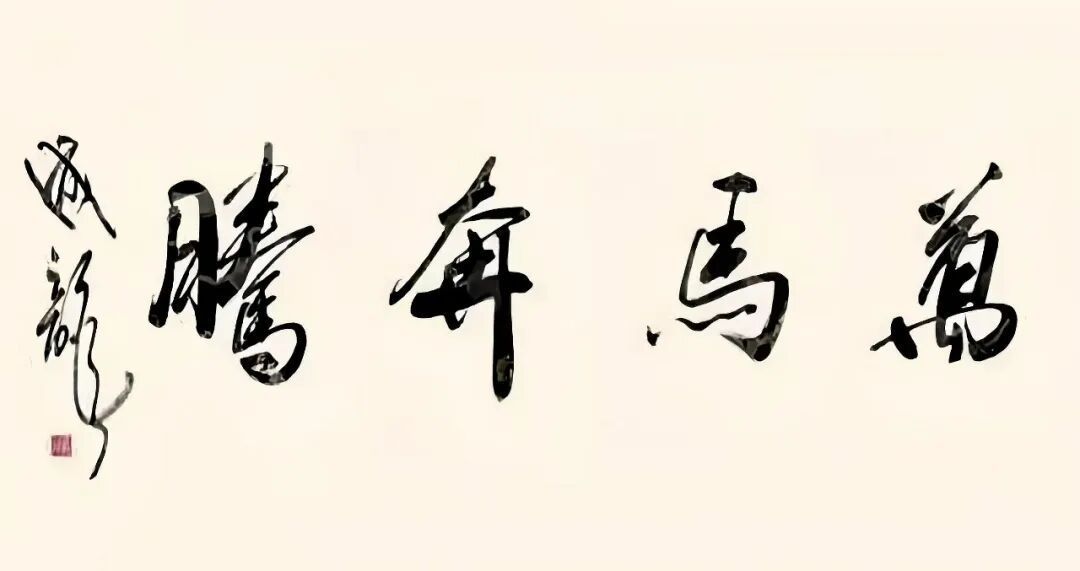 萬馬奔騰
成龍